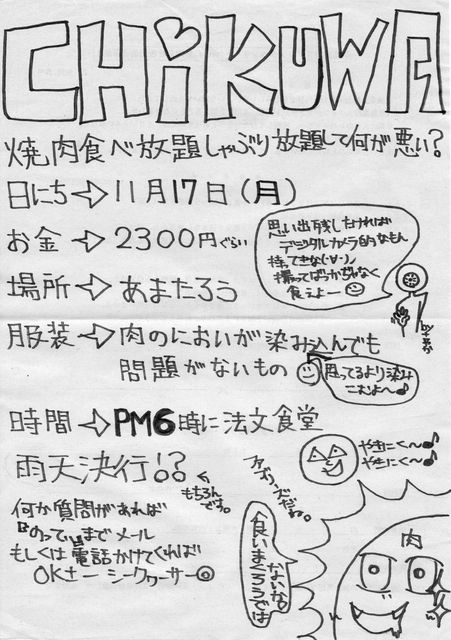 CHiKUWA
焼肉食べ放題しゃぶり放題して何が悪い?
日にち→11月17日(月)
お金→2300円ぐらい
思い出残したければ
デジタルカメラ的なもん
持ってきな(・∀・)ノ
撮ってばっかぢゃなく
食えよー
場所→あまたろう
服装→肉のにおいが染み込んでも
問題がないもの
思ってるより染み
こむよ〜♪
時間→PM6時に法文食堂
やきにく〜♪
やきにく〜♪
雨天決行!?
←もちろん
です。
何か質問があれば
『のってぃ』までメール
もしくは電話かけてくれば
OKさーシークヮーサー◎
食いまくろうでは
ないな。
肉